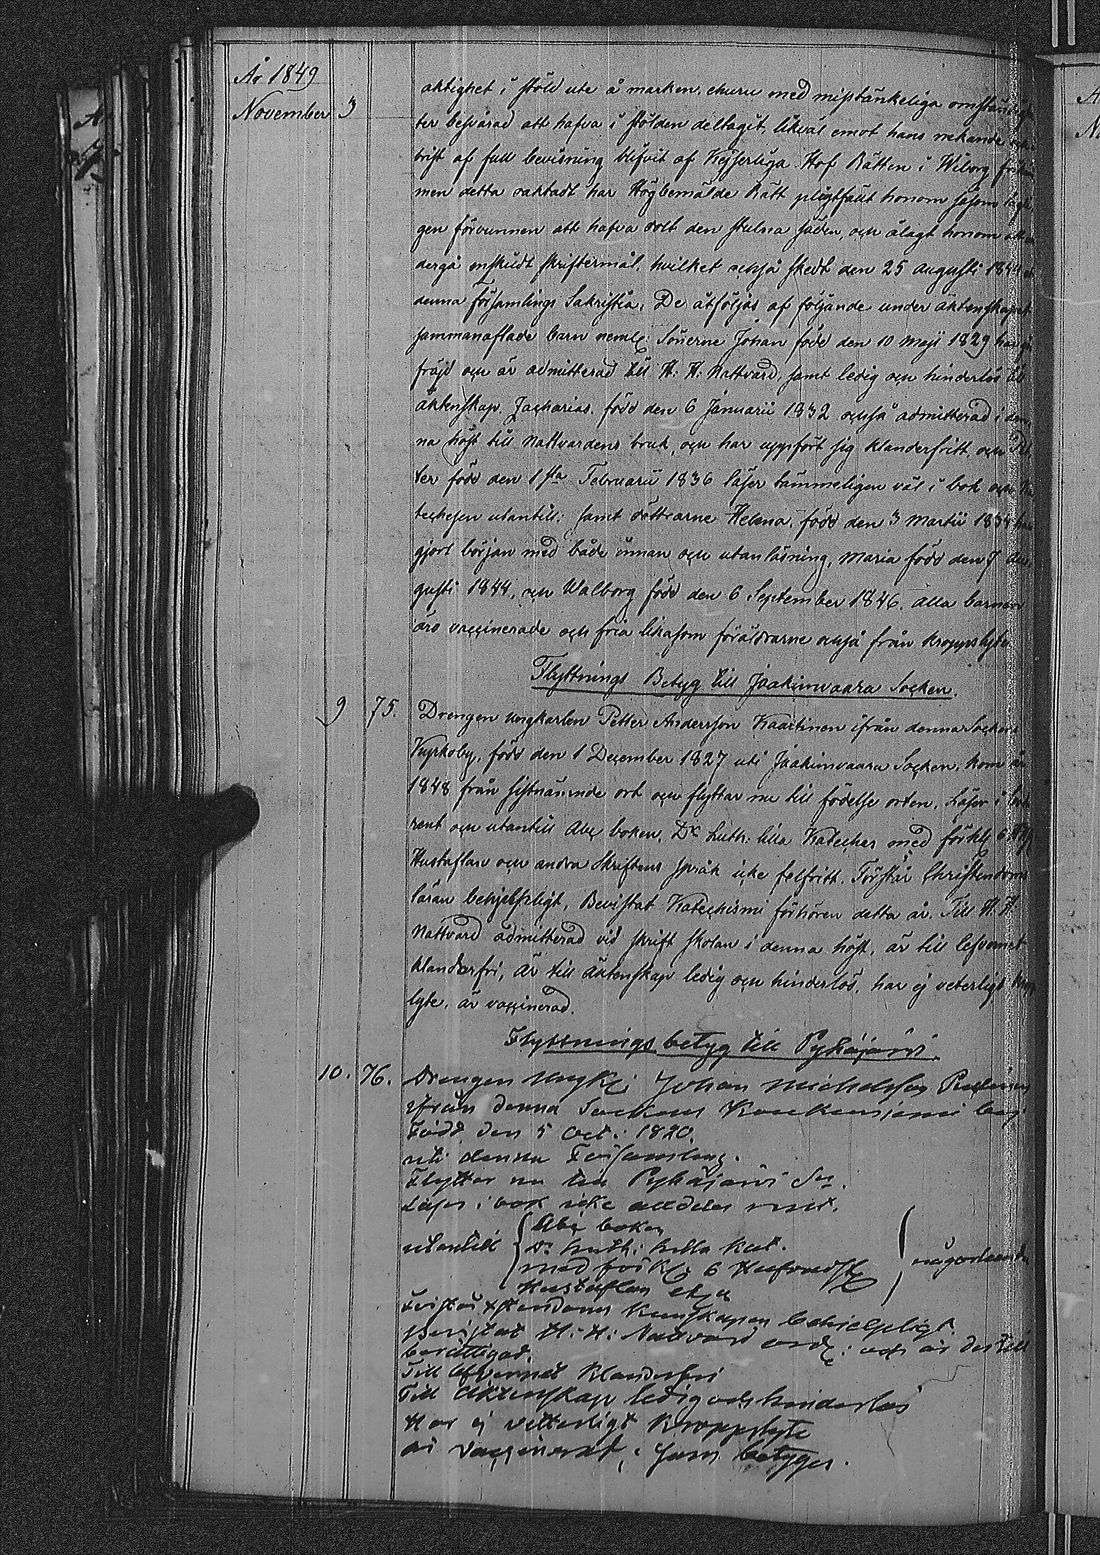 År 1849
November 3
aktighet i stöld ute å marken, ehuru med misstänkeliga omständig
ter besvärad att hafva i stölden deltagit, likväl emot hans nekande och i
brist af full bevisning blifvit af Kejserliga Hof Rätten i Wiborg
men detta oaktadt har Högbemälde Rätt pligtfällt honom såsom lagli
gen förvunnen att hafva dolt den stulna säden, och ålagt honom
dergå enskildt skriftermål, hvilket också skedt den 25 Augusti
denna Församlings Sakristia. De åtföljas af följande under äktenskapet
sammanaflade barn neml: Sönerne Johan född den 10 Maji 1829 har
frejd och är admitterad till H: H: Nattvard, samt ledig och hinderlös till
äktenskap. Zacharias född den 6 Januarii 1832 också admitterad i den
na höst till Nattvardens bruk, och har uppfört sig klanderfritt, och Pet
ter född den 1sta Februarii 1836 läser tämmeligen väl i bok och
techesen utantill; samt döttrarne Helena, född den 3 Martii
gjort början med både innan och utanläsning, Maria född den 7 Au
gusti 1844, och Walborg född den 6 September 1846. Alla barnen
äro vaccinerade och fria likasom föräldrarne också från kroppslyte.
Flyttnings Betyg till Jaakimvaara Socken.
9 75. Drengen ungkarlen Petter Andersson Kaartinen ifrån denna Sockens
Kyrkoby, född den 1 December 1827 uti Jaakimvaara Socken, kom år
1848 från sistnämnde ort och flyttar nu till födelse orten. Läser i bok
rent och utantill Abc boken, Dr Luth: lilla Kateches med förkl:
Hustaflan och andra Skriftens språk icke felfritt. Förstår Christendoms
läran behjelpligt, Bevistat Katechismi förhören detta år. Till H. H.
Nattvard admitterad vid skrift skolan i denna höst, är till lefvernet
klanderfri, är till äktenskap ledig och hinderlös, har ej veterligt
lyte, är vaccinerad.
Flyttnings betyg till Pyhäjärvi.
10. 76. Drengen Ungk: Johan Michelsson
ifrån denna Sockens
Född den 5 Oct: 1820.
uti denna Församling.
Flyttar nu till Pyhäjärvi Sn.
Läser i bok icke alldeles rent.
utantill Abc boken
Dr Luth: lilla Kat.
med förkl: 6 Hufvudst
Hustaflan
någorlunda
Kunskapen behjelpligt.
Bevistat H: H: Nattvard ordl: och är dertill
berättigad.
Till lefvernet klanderfri
Till äktenskap ledig och hinderlös
Har ej vetterligt kroppslyte
är vaccinerat, som betyges.